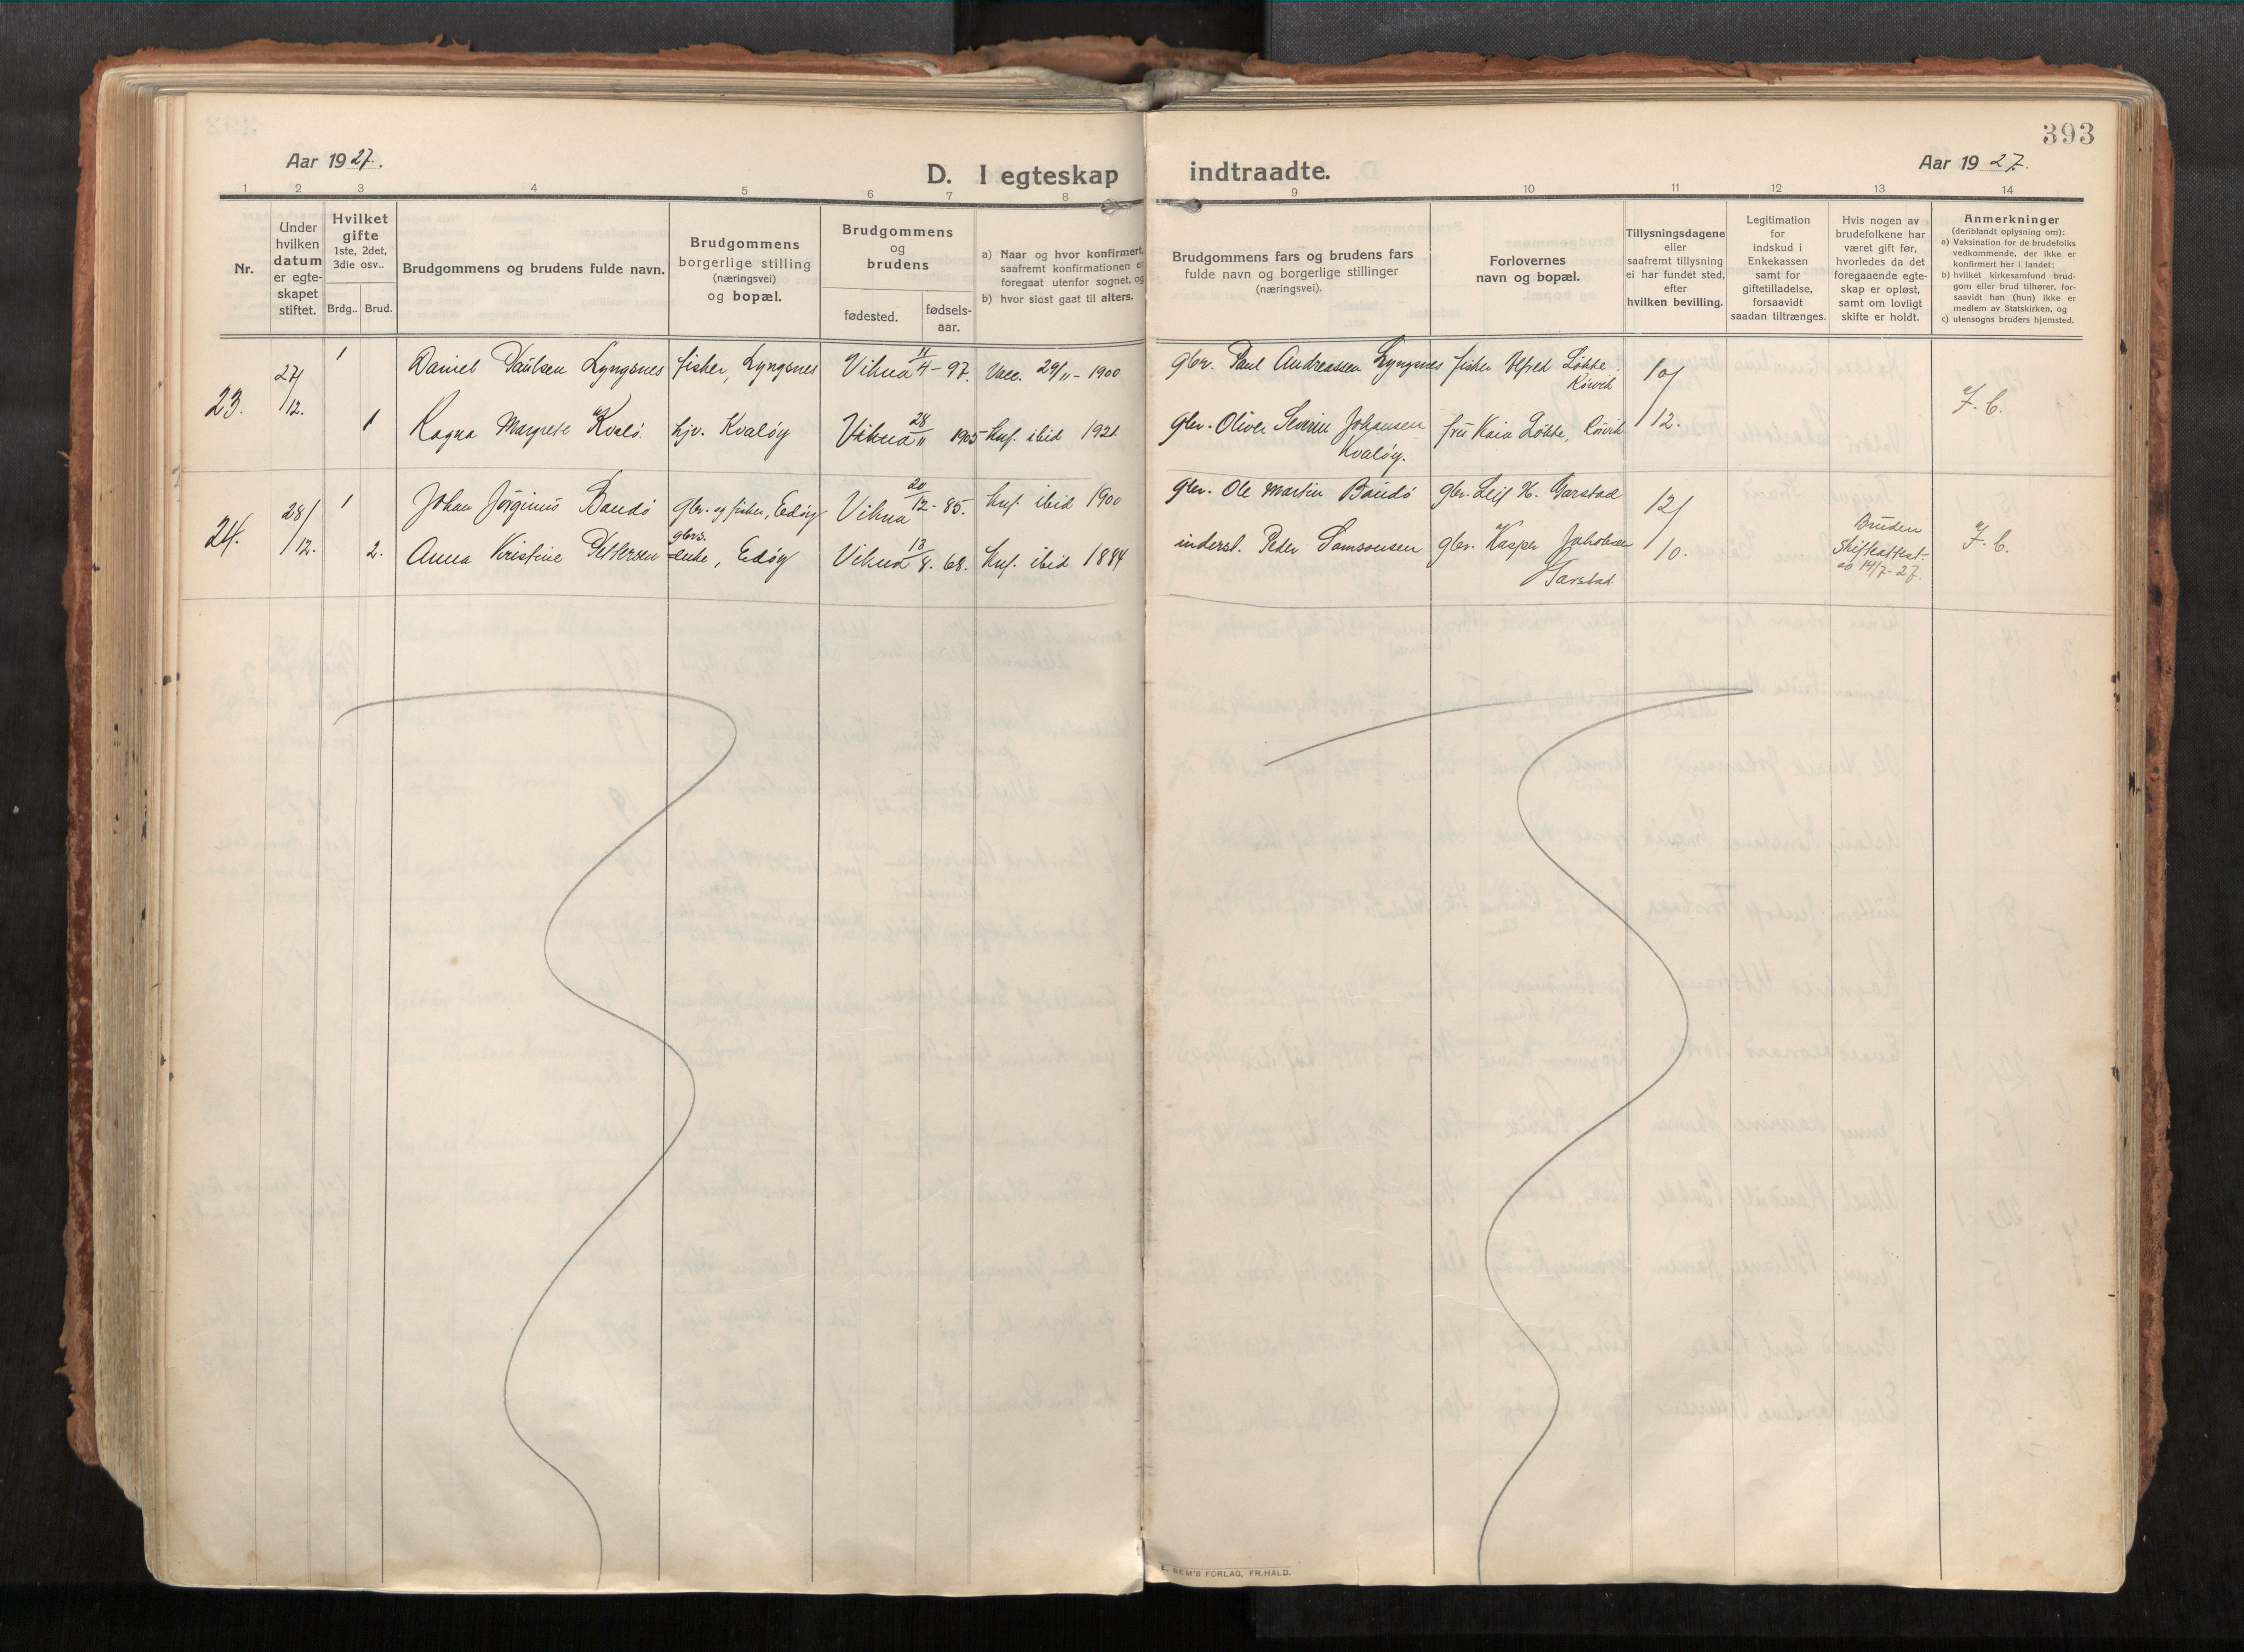 393
Aar 1927.
D. I egteskap indtraadte.
Aar 1927.
1 2 3 4 5 6 7 8 9 10 11 12 13 14
Nr.
Under
hvilken
datum
er egte-
skapet
stiftet.
Hvilket
gifte
1ste, 2det,
3die osv..
Brdg.. Brud.
Brudgommens og brudens fulde navn.
Brudgommens
borgerlige stilling
(næringsvei)
og bopæl.
Brudgommens
og
brudens
fødested.
fødsels-
aar.
a) Naar og hvor konfirmert,
saafremt konfirmationen er
foregaat utenfor sognet, og
b) hvor sidst gaat til alters.
Brudgommens fars og brudens fars
fulde navn og borgerlige stillinger
(næringsvei).
Forlovernes
navn og bopæl.
Tillysningsdagene
eller
saafremt tillysning
ei har fundet sted,
efter
hvilken bevilling.
Legitimation
for
indskud i
Enkekassen
samt for
giftetilladelse,
forsaavidt
saadan tiltrænges.
Hvis nogen av
brudefolkene har
været gift før,
hvorledes da det
foregaaende egte-
skap er opløst,
samt om lovligt
skifte er holdt.
Anmerkninger
(deriblandt oplysning om):
a) Vaksination for de brudefolks
vedkommende, der ikke er
konfirmert her i landet;
b) hvilket kirkesamfund brud-
gom eller brud tilhører, for-
saavidt han (hun) ikke er
medlem av Statskirken, og
c) utensogns bruders hjemsted.
23.
27/12.
1
Daniel Paulsen Lyngsnes
fisker, Lyngsnes
Vikna 11/4-97.
Vacc. 29/11-1900
gbr. Paul Andreassen Lyngsnes
fisker Alfred Løkke
Rørvik
10/12.
1
Ragna Margrete Kvalø.
hjv. Kvaløy
Vikna 28/11 1905
Knf. ibid 1921
gbr. Oliver Severin Johansen
Kvaløy.
fru Kaia Løkke, Rørvik
F. C.
24.
28/12.
1
Johan Jørginus Bondø
gbr. og fisker, Edøy
Vikna 20/12-85.
Knf. ibid 1900
gbr. Ole Martin Bondø
gbr. Leif H. Garstad
12/10.
2.
Anna Kristine Pettersen
gbrs.
enke, Edøy
Vikna 13/8. 68.
Knf. ibid 1884
inderst. Peder Samsonsen
gbr. Kasper Jakobsen
Garstad.
Bruden
Skifteattest
av 14/7-27.
F. C.
E. SEM'S FORLAG, FR.HALD.